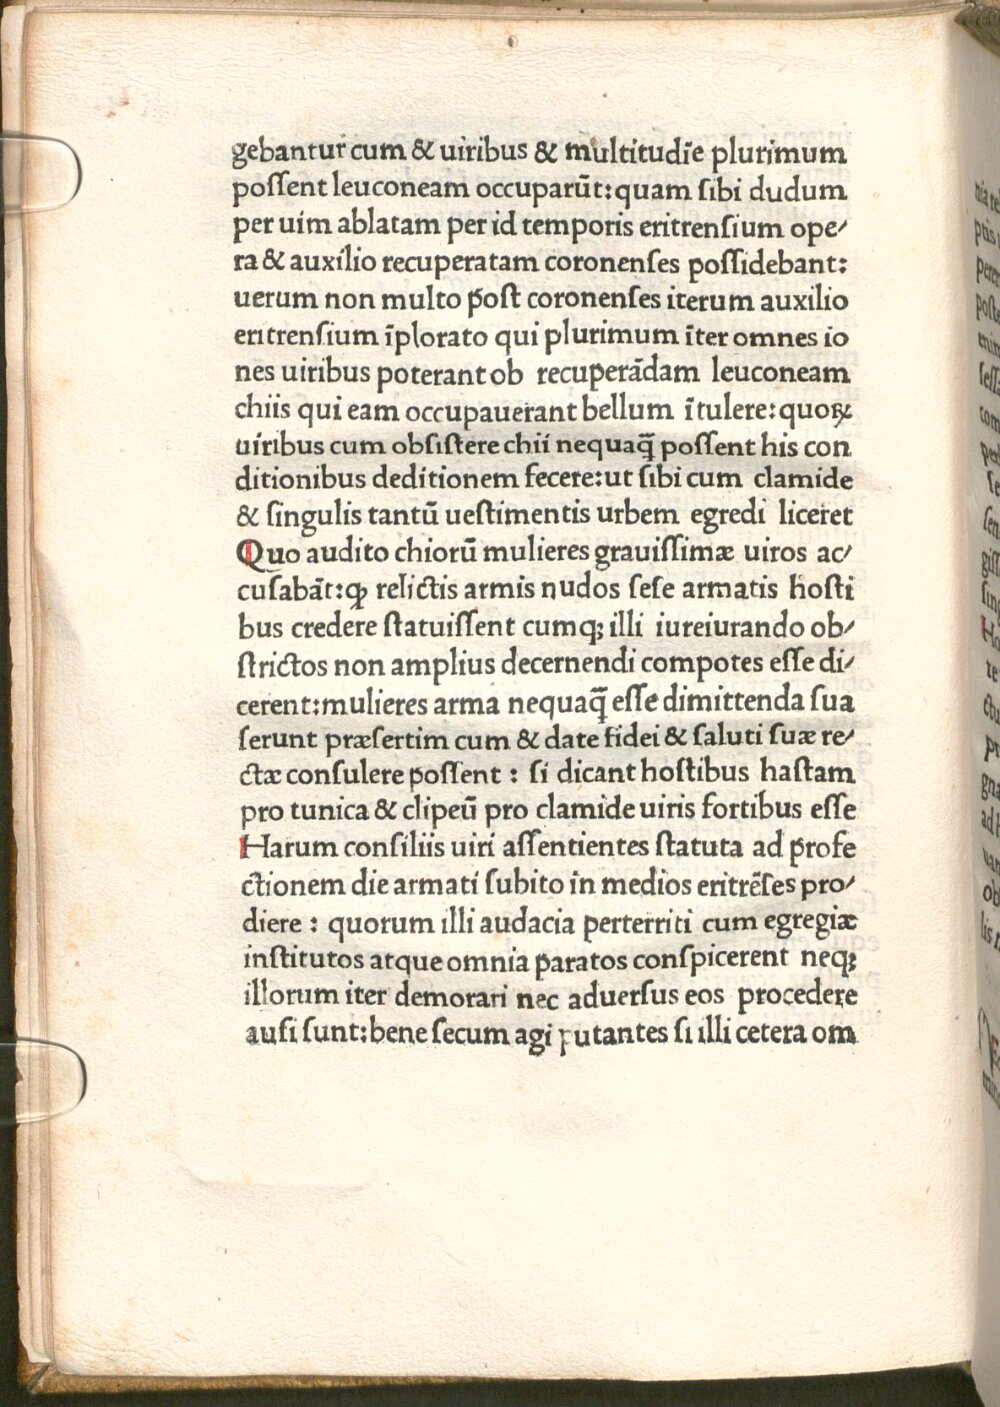 gebantur cum & uiribus & multitudīe plurimum
poſſent leuconeam occuparūt: quam ſibi dudum
per uim ablatam per id temporis eritrenſium ope⸗
ra & auxilio recuperatam coronenſes poſſidebant:
uerum non multo poſt coronenſes iterum auxilio
eritrenſium īplorato qui plurimum īter omnes io
nes uiribus poterant ob recuperādam leuconeam
chiis qui eam occupauerant bellum ītulere: quoꝝ
uiribus cum obſiſtere chii nequaq̃ poſſent his con
ditionibus deditionem fecere: ut ſibi cum clamide
& ſingulis tantū ueſtimentis urbem egredi liceret
Quo audito chiorū mulieres grauiſſimæ uiros ac⸗
cuſabāt: ꝙ relictis armis nudos ſeſe armatis hoſti
bus credere ſtatuiſſent cumq; illi iureiurando ob⸗
ſtrictos non amplius decernendi compotes eſſe di⸗
cerent: mulieres arma nequaq̃ eſſe dimittenda ſua
ſerunt præſertim cum & date fidei & ſaluti ſuæ re⸗
ctæ conſulere poſſent : ſi dicant hoſtibus haſtam
pro tunica & clipeū pro clamide uiris fortibus eſſe
Harum conſiliis uiri aſſentientes ſtatuta ad profe
ctionem die armati ſubito in medios eritrēſes pro⸗
diere : quorum illi audacia perterriti cum egregiæ
inſtitutos atque omnia paratos conſpicerent neq;
illorum iter demorari nec aduerſus eos procedere
auſi ſunt: bene ſecum agi putantes ſi illi cetera om